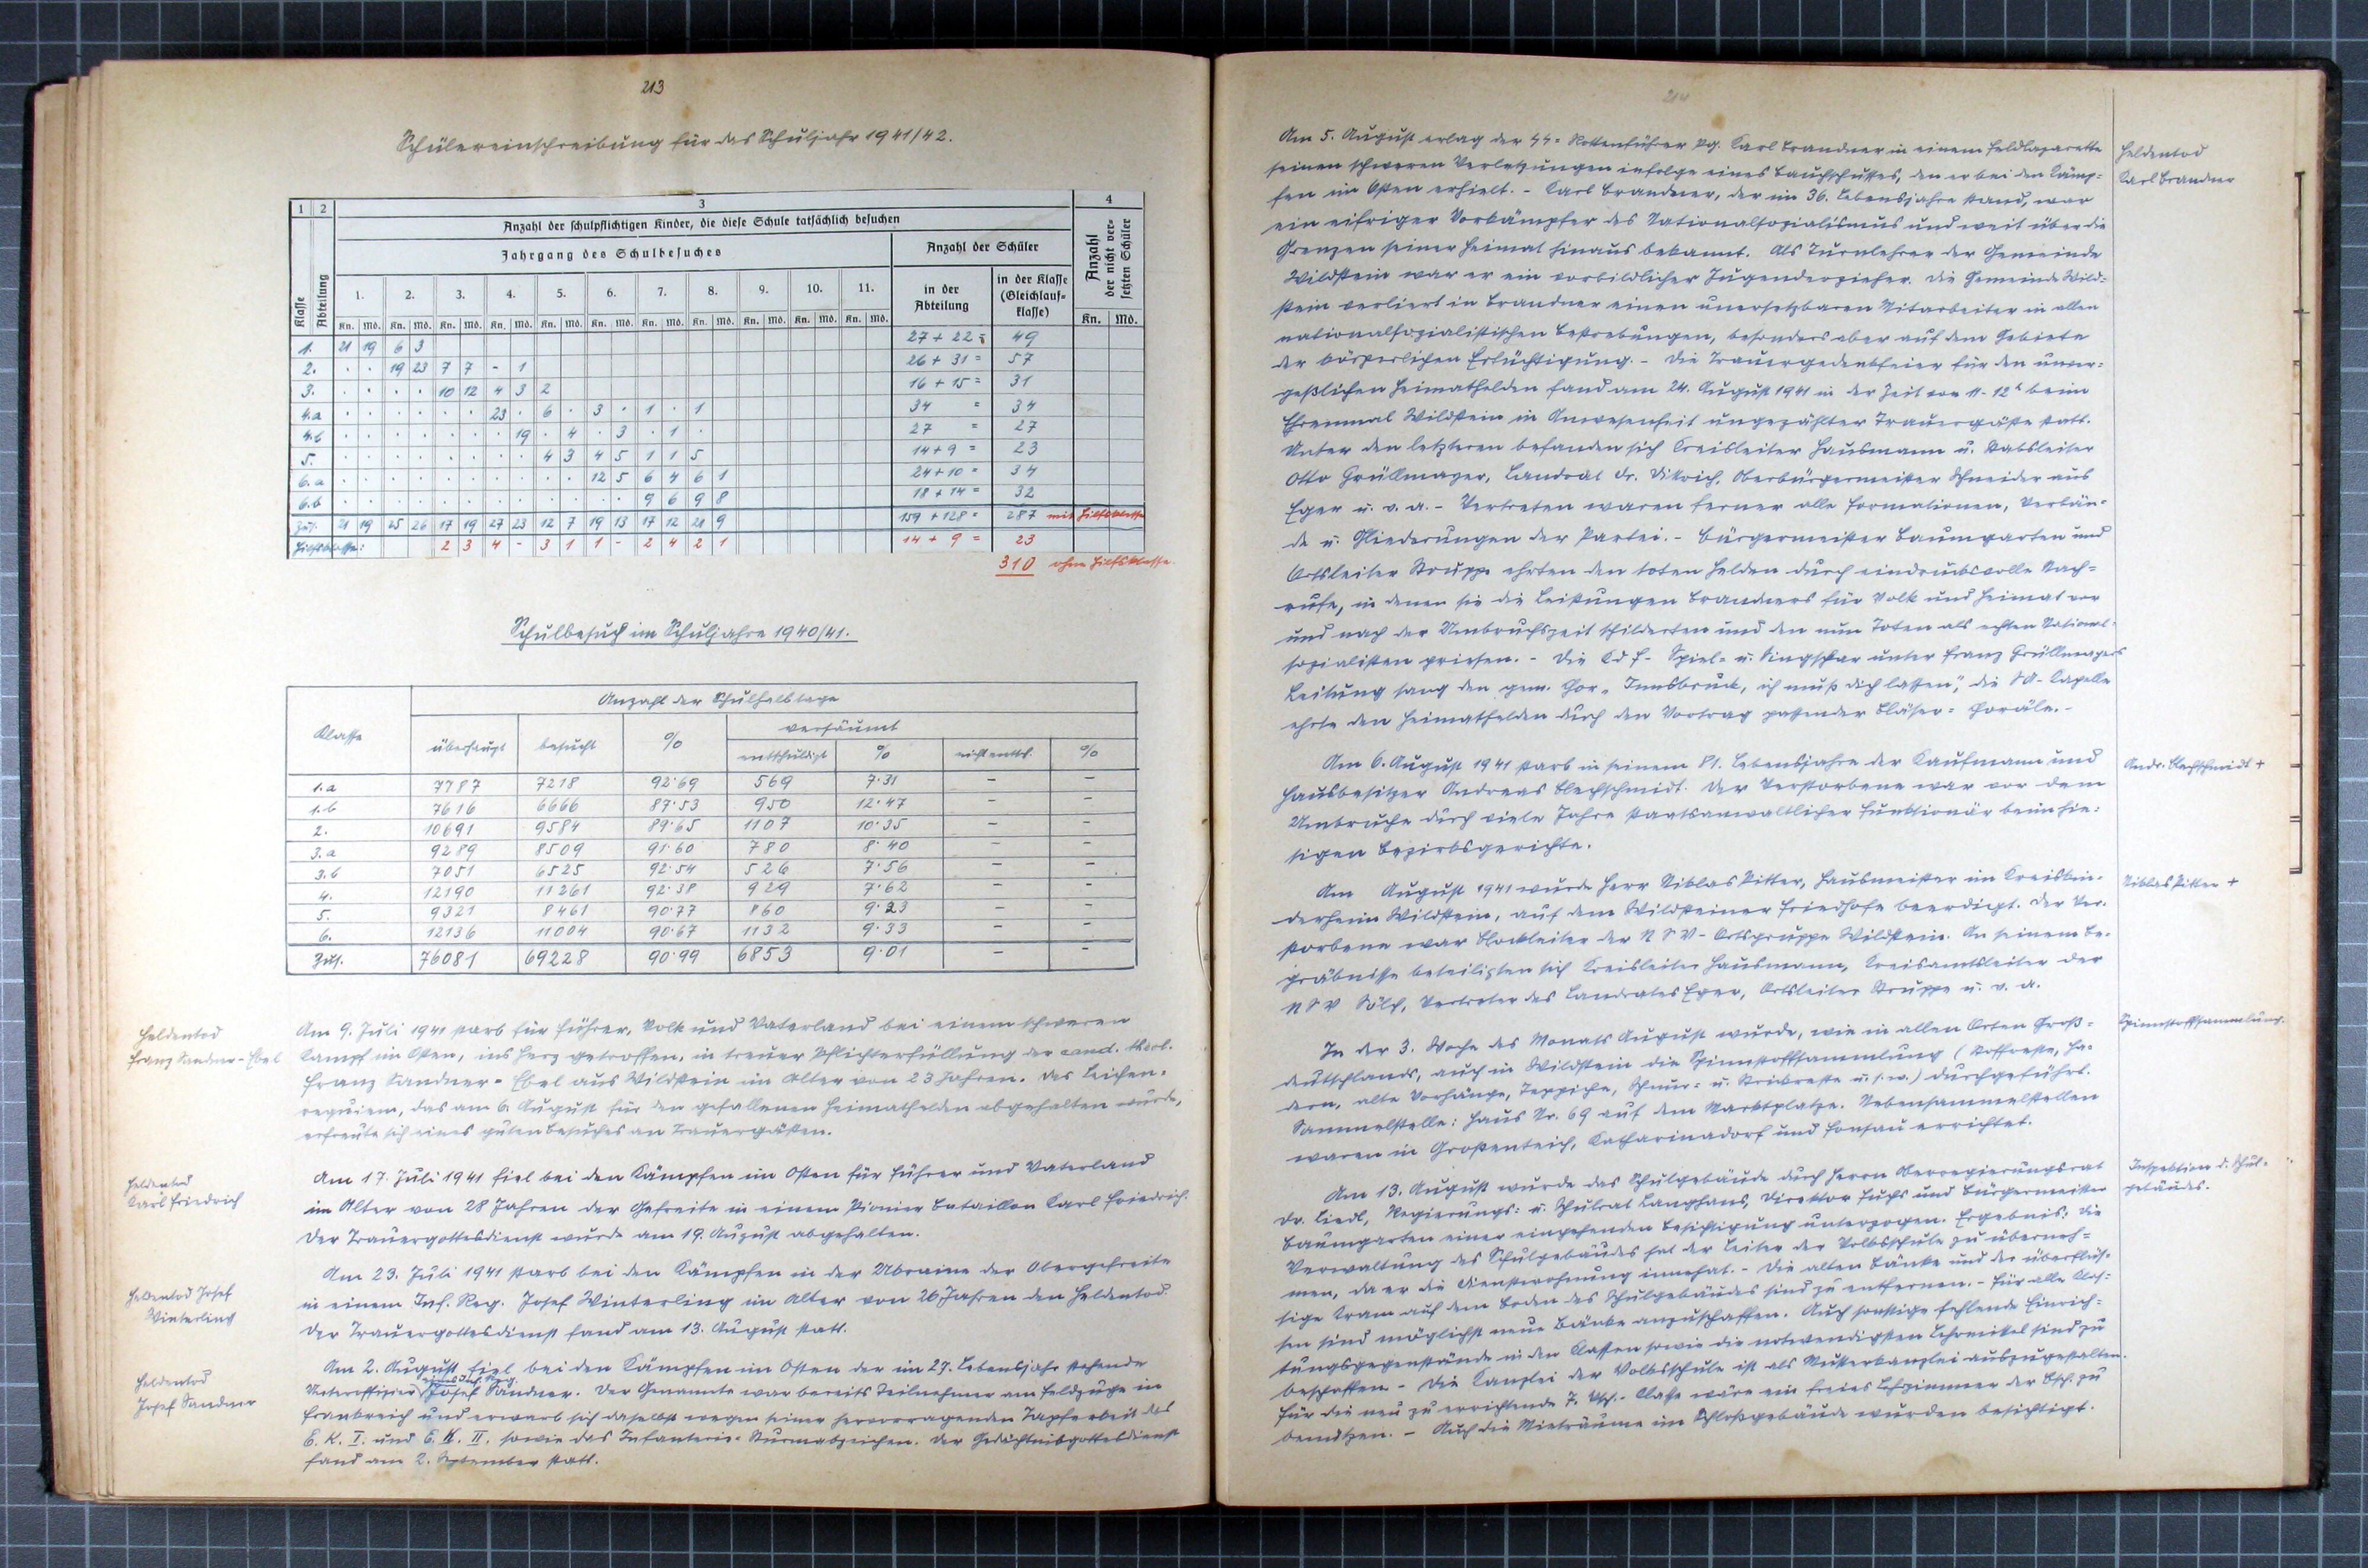 213
Schülereinschreibung für das Schuljahr 1941/42.
1 2 3 4
Klasse
Abteilung
Anzahl der schulpflichtigen Kinder, die diese Schule tatsächlich besuchen
Anzahl der nicht versetzten Schüler
Jahrgang des Schulbesuches
Anzahl der Schüler
1. 2. 3. 4. 5. 6. 7. 8. 9. 10. 11.
in der Abteilung
in der Klasse (Gleichlauf=klasse)
Kn. Md. Kn. Md. Kn. Md. Kn. Md. Kn. Md. Kn. Md. Kn. Md. Kn. Md. Kn. Md. Kn. Md. Kn. Md. Kn. Md.
1. 21 19 6 3 27 + 22 = 49
2. . . 19 23 7 7 - 1 26 + 31 = 57
3. . . . . 10 12 4 3 2 16 + 15 = 31
4.a . . . . . . 23 . 6 . 3 . 1 . 1 34 = 34
4.b . . . . . . . 19 . 4 . 3 . 1 . 27 = 27
5. . . . . . . . . 4 3 4 5 1 1 5 14 + 9 = 23
6.a . . . . . . . . . . 12 5 6 4 6 1 24 + 10 = 34
6.b . . . . . . . . . . . . 9 6 9 8 18 + 14 = 32
Zus. 21 19 25 26 17 19 27 23 12 7 19 13 17 12 21 9 159 + 128 = 287 mit Hilfsklasse
Hilfsklasse: 2 3 4 - 3 1 1 - 2 4 2 1 14 + 9 = 23
310 ohne Hilfsklasse
Schulbesuch im Schuljahre 1940/41.
Klasse
Anzahl der Schulhalbtage
überhaupt besucht % versäumt
entschuldigt % nicht entsch. %
1.a 7787 7218 92·69 569 7·31 – –
1.b 7616 6666 87·53 950 12·47 – –
2. 10691 9584 89·65 1107 10·35 – –
3.a 9289 8509 91·60 780 8·40 – –
3.b 7051 6525 92·54 526 7·56 – –
4. 12190 11261 92·38 929 7·62 – –
5. 9321 8461 90·77 860 9·23 – –
6. 12136 11004 90·67 1132 9·33 – –
Zus. 76081 69228 90·99 6853 9·01 – –
Heldentod
Franz Sandner-Ebel
Am 9. Juli 1941 starb für Führer, Volk und Vaterland bei einem schweren
Kampf im Osten, ins Herz getroffen, in treuer Pflichterfüllung der cand. theol.
Franz Sandner-Ebel aus Wildstein im Alter von 23 Jahren. Das Leichen-
requiem, das am 6. August für den gefallenen Heimathelden abgehalten wurde,
erfreute sich eines guten Besuches an Trauergästen.
Heldentod
Karl Friedrich
Am 17. Juli 1941 fiel bei den Kämpfen im Osten für Führer und Vaterland
im Alter von 28 Jahren der Gefreite in einem Pionier Bataillon Karl Friedrich.
Der Trauergottesdienst wurde am 19. August abgehalten.
Heldentod Josef
Winterling
Am 23. Juli 1941 starb bei den Kämpfen in der Ukraine der Obergefreite
in einem Inf. Reg. Josef Winterling im Alter von 26 Jahren den Heldentod.
Der Trauergottesdienst fand am 13. August statt.
Heldentod
Josef Sandner
Am 2. August fiel bei den Kämpfen im Osten der im 27. Lebensjahr stehende
eines Inf. Reg.
Unteroffizier Josef Sandner. Der Genannte war bereits Teilnehmer am Feldzuge in
Frankreich und erwarb sich daselbst wegen seiner hervorragenden Tapferkeit das
E. K. I. und E. K. II. sowie das Infanterie-Sturmabzeichen. Der Gedächtnisgottesdienst
fand am 2. September statt.
214
Am 5. August erlag der SS-Rottenführer Pg. Karl Brandner in einem Feldlazarette
seinen schweren Verletzungen infolge eines Bauchschusses, den er bei den Kämp=
fen im Osten erhielt. - Karl Brandner, der im 36. Lebensjahre stand, war
ein eifriger Vorkämpfer des Nationalsozialismus und weit über die
Grenzen seiner Heimat hinaus bekannt. Als Turnlehrer der Gemeinde
Wildstein war er ein vorbildlicher Jugenderzieher. Die Gemeinde Wild=
stein verliert in Brandner einen unersetzbaren Mitarbeiter in allen
nationalsozialistischen Bestrebungen, besonders aber auf dem Gebiete
der körperlichen Ertüchtigung. - Die Trauergedenkfeier für den unver=
geßlichen Heimathelden fand am 24. August 1941 in der Zeit von 11-12h beim
Ehrenmal Wildstein in Anwesenheit ungezählter Trauergäste statt.
Unter den letzteren befanden sich Kreisleiter Hausmann u. Stabsleiter
Otto Grüllmayer, Landrat Dr. Dittrich, Oberbürgermeister Schneider aus
Eger u. v. a. - Vertreten waren ferner alle Formationen, Verbän=
de u. Gliederungen der Partei. - Bürgermeister Baumgarten und
Ortsleiter Struppe ehrten den toten Helden durch eindrucksvolle Nach=
rufe, in denen sie die Leistungen Brandners für Volk und Heimat vor
und nach der Umbruchszeit schilderten und den nun Toten als echten National=
sozialisten priesen. - Die KdF-Spiel- u. Singschar unter Franz Grüllmayers
Leitung sang den gem. Chor „Innsbruck, ich muß dich lassen", die SA-Kapelle
ehrte den Heimathelden durch den Vortrag passender Bläser-Choräle.-
Heldentod
Karl Brandner
Am 6. August 1941 starb in seinem 81. Lebensjahre der Kaufmann und
Hausbesitzer Andreas Blechschmidt. Der Verstorbene war vor dem
Umbruche durch viele Jahre staatsanwaltlicher Funktionär beim hie=
sigen Bezirksgerichte.
Andr. Blechschmidt +
Am August 1941 wurde Herr Niklas Pitter, Hausmeister im Kreiskin-
derheim Wildstein, auf dem Wildsteiner Friedhofe beerdigt. Der Ver-
storbene war Blockleiter der NSV-Ortsgruppe Wildstein. An seinem Be-
gräbnisse beteiligten sich Kreisleiter Hausmann, Kreisamtsleiter der
NSV Sölch, Vertreter des Landrates Eger, Ortsleiter Struppe u. v. a.
Niklas Pitter +
In der 3. Woche des Monats August wurde, wie in allen Orten Groß=
deutschlands, auch in Wildstein die Spinnstoffsammlung (Stoffreste, Ha-
dern, alte Vorhänge, Teppiche, Schnür- u. Strickreste u.s.w.) durchgeführt.
Sammelstelle: Haus Nr. 69 auf dem Marktplatze. Nebensammelstellen
waren in Großenteich, Katharinadorf und Fonsau errichtet.
Spinnstoffsammlung.
Am 13. August wurde das Schulgebäude durch Herrn Oberregierungsrat
Dr. Liedl, Regierungs- u. Schulrat Langhans, Direktor Fuchs und Bürgermeister
Baumgarten einer eingehenden Besichtigung unterzogen. Ergebnis: Die
Verwaltung des Schulgebäudes hat der Leiter der Volksschule zu überneh=
men, da er die Dienstwohnung innehat. - Die alten Bänke und der überflüs-
sige Kram auf dem Boden des Schulgebäudes sind zu entfernen. - Für alle Klas=
sen sind möglichst neue Bänke anzuschaffen. Auch sonstige fehlende Einrich=
tungsgegenstände in den Klassen sowie die notwendigsten Lehrmittel sind zu
beschaffen. - Die Kanzlei der Volksschule ist als Musterkanzlei auszugestalten.
Für die neu zu errichtende 7. Vsch.-Klasse wäre ein freies Lehrzimmer der Bsch. zu
benützen. - Auch die Mieträume im Schloßgebäude wurden besichtigt.
Inspektion d. Schul-
gebäudes.